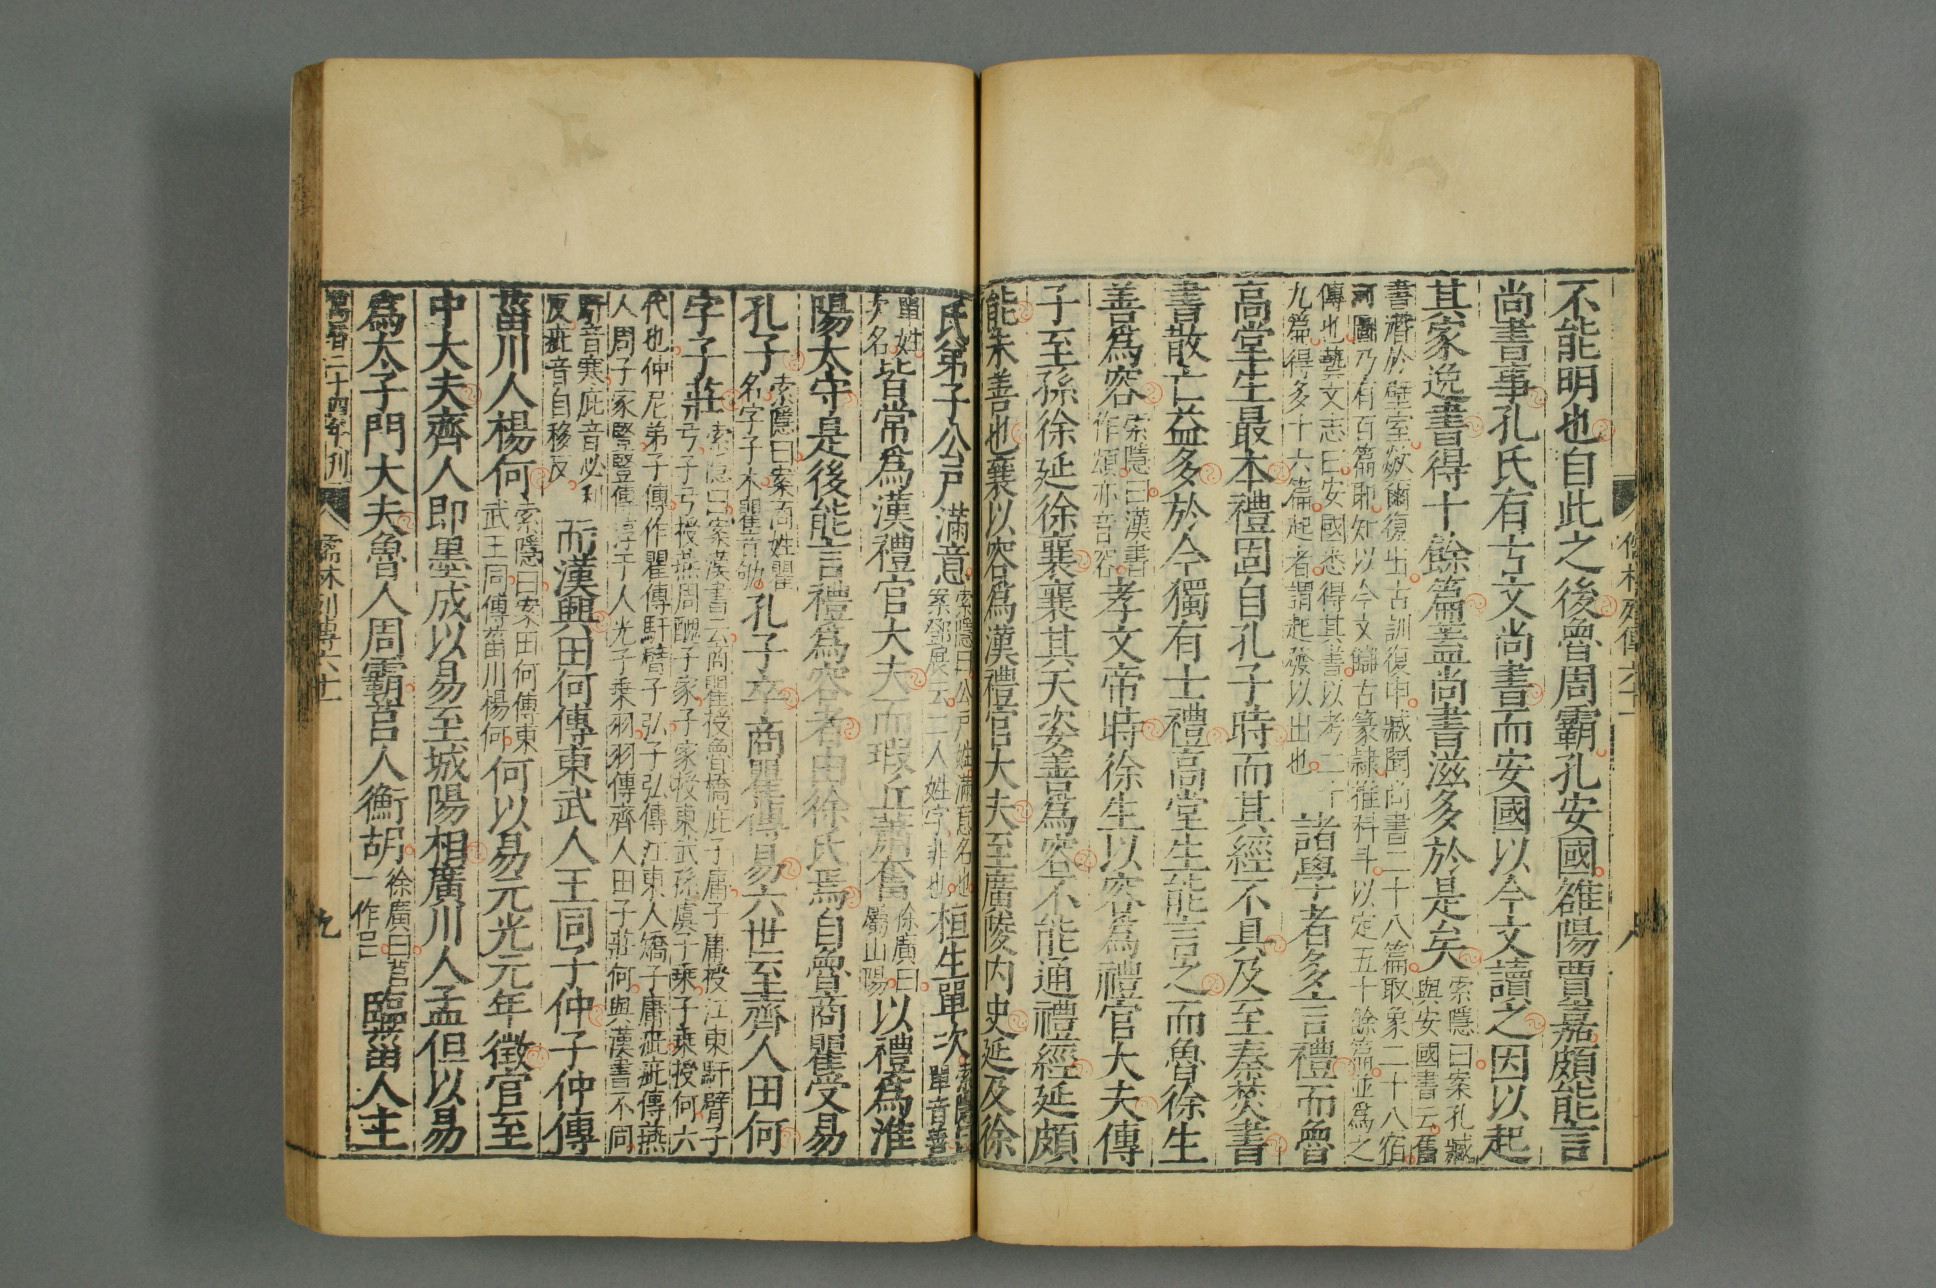 儒林列傳六十一 八
不能明也自此之後魯周霸孔安國雒陽賈嘉頗能言
尚書事孔氏有古文尚書而安國以今文讀之因以起
其家逸書得十餘篇蓋尚書滋多於是矣索隱曰案孔臧
與安國書云舊
書潛於壁室歘爾復出古訓復申臧聞尚書二十八篇取象二十八宿
河圖乃有百篇耶知以今文讎古篆隸推科斗以定五十餘篇並爲之
傳也藝文志曰安國悉得其書以考二十
九篇得多十六篇起者謂起發以出也
諸學者多言禮而魯
高堂生最本禮固自孔子時而其經不具及至秦焚書
書散亡益多於今獨有士禮高堂生能言之而魯徐生
善爲容索隱曰漢書
作頌亦音容孝文帝時徐生以容爲禮官大夫傳
子至孫徐延徐襄襄其天姿善爲容不能通禮經延頗
能未善也襄以容爲漢禮官大夫至廣陵內史延及徐
氏弟子公戶滿意索隱曰公戶姓滿意名也
案鄧展云二人姓字非也桓生單次索隱曰
單音善
單姓
次名皆常爲漢禮官大夫而瑕丘蕭奮徐廣曰
屬山陽以禮爲淮
陽太守是後能言禮爲容者由徐氏焉自魯商瞿受易
孔子索隱曰案商姓瞿
名字子木瞿音劬孔子卒商瞿傳易六世至齊人田何
字子莊索隱曰案漢書云商瞿授魯橋庇子庸子庸授江東馯臂子
弓子弓授燕周醜子家子家授東武孫虞子乘子乘授何六
代也仲尼弟子傳作瞿傳馯臂子弘子弘傳江東人矯子庸疵疵傳燕
人周子家豎豎傳淳于人光子乘羽羽傳齊人田子莊何與漢書不同
馯音寒庇音必利
反疵音自移反
而漢興田何傳東武人王同子仲子仲傳
菑川人楊何索隱曰案田何傳東
武王同傳菑川楊何何以易元光元年徵官至
中大夫齊人即墨成以易至城陽相廣川人孟但以易
爲太子門大夫魯人周霸莒人衡胡徐廣曰莒
一作呂臨菑人主
萬曆二十四年刊 儒林列傳六十一 九